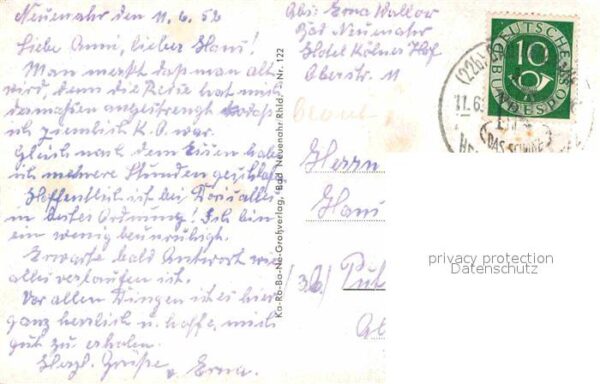 Neuenahr den 11.6.52
Liebe Anni, lieber Hans!
Man merkt daß man alt
wird, denn die Reise hat mich
dermaßen angestrengt sodaß
ich ziemlich K.O. war.
Gleich nach dem Essen habe
ich mehrere Stunden geschlafen
Hoffentlich ist bei Doris alles
in bester Ordnung! Ich bin
ein wenig beunruhigt.
Erwarte bald Antwort wie
alles verlaufen ist.
Vor allen Dingen ist es hier
ganz herrlich u. hoffe, mich
gut zu erholen.
Herzl. Grüße
v. Erna.
Ka-Ro-Ba-Ne-Großverlag, Bad Neuenahr Rhld. Nr. 122
Abs: Erna Wallow
Bad Neuenahr
Hotel Kölner Hof
Oberstr. 11
DEUTSCHE
10
BUNDESPOST
(22b)
11.6
Herrn
Hans
privacy protection
Datenschutz